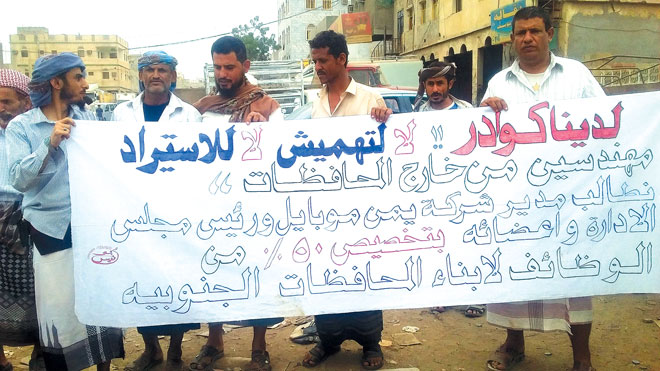 لدينا كوادر !! لا لتهميش لا للاستيراد
مهندسين من خارج المحافظات "
نطالب مدير شركة يمن موبايل ورئيس مجلس
الادارة واعضائه بتخصيص ٥٠٪ من
الوظائف لابناء المحافظات الجنوبيه